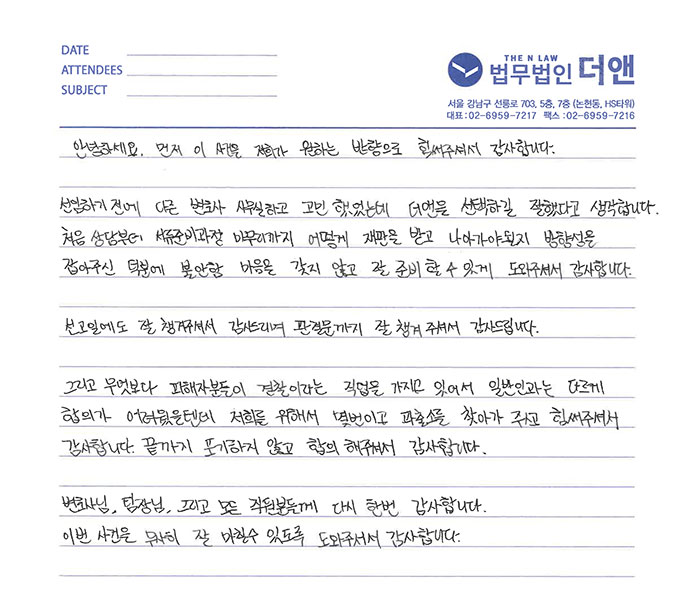 DATE
ATTENDEES
SUBJECT
THE N LAW
법무법인 더앤
서울 강남구 선릉로 703, 5층, 7층 (논현동, HS타워)
대표 : 02-6959-7217 팩스 : 02-6959-7216
안녕하세요. 먼저 이 사건을 저희가 원하는 방향으로 힘써주셔서 감사합니다.
선임하기 전에 다른 변호사 사무실하고 고민 했었는데 더앤을 선택하길 잘했다고 생각합니다.
처음 상담부터 서류준비과정 마무리까지 어떻게 재판을 받고 나아가야될지 방향성을
잡아주신 덕분에 불안함 마음을 갖지 않고 잘 준비 할 수 있게 도와주셔서 감사합니다.
선고일에도 잘 챙겨주셔서 감사드리며 판결문까지 잘 챙겨 주셔서 감사드립니다.
그리고 무엇보다 피해자분들이 경찰이라는 직업을 가지고 있어서 일반인과는 다르게
합의가 어려웠을텐데 저희를 위해서 몇번이고 파출소를 찾아가 주시고 힘써주셔서
감사합니다. 끝까지 포기하지 않고 합의 해주셔서 감사합니다.
변호사님, 팀장님, 그리고 모든 직원분들께 다시 한번 감사합니다.
이번 사건을 무사히 잘 마칠수 있도록 도와주셔서 감사합니다.